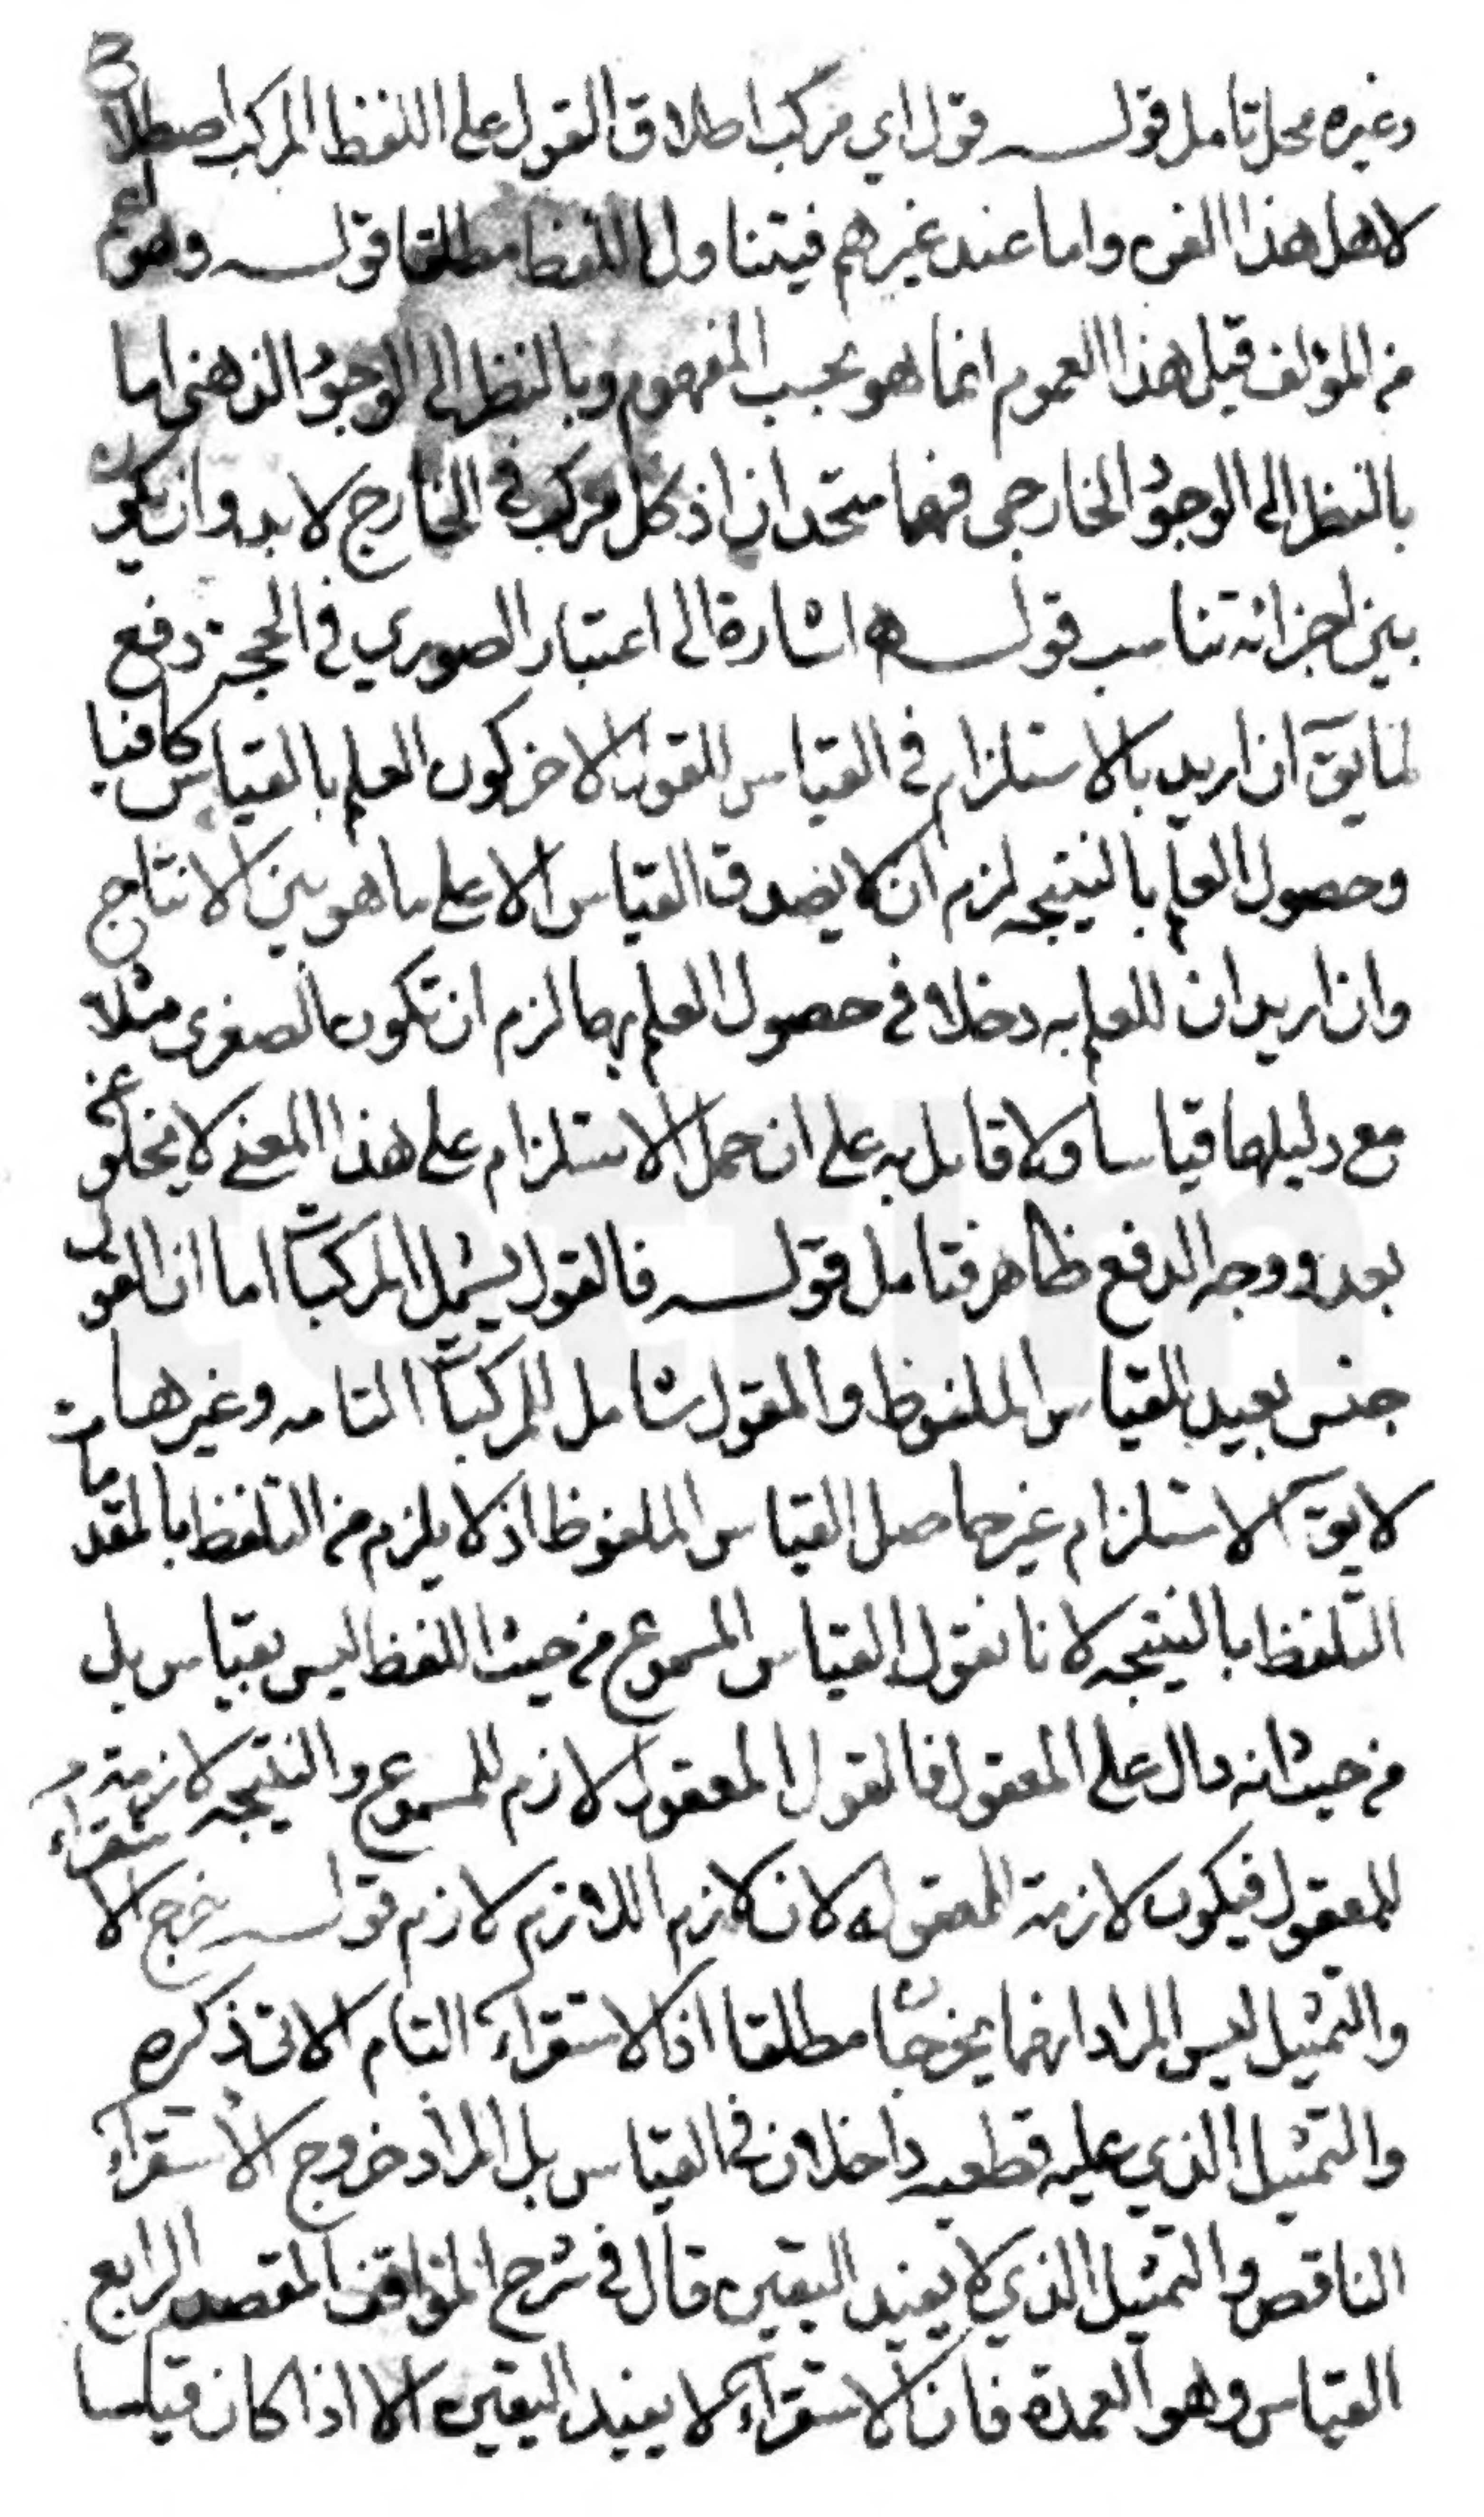 وغيره محل تامل قولـــه قول اي مركب اطلاق القول على اللفظ المركب اصطلاح
لاهل هذا الفن واما عند غيرهم فيتناول اللفظ مطلقا قولـــه وهو اعم
من المؤلف قيل هذا العموم انما هو بحسب المفهوم وبالنظر الى الوجود الذهني اما
بالنظر الى الوجود الخارجي فهما متحدان اذ كل مركب في الخارج لا بد وان يكون
بين اجزائه تناسب قولـــه اشارة الى اعتبار الصوري في الحجة دفع
لما يقَ ان اريد بالاستلزام في القياس للقول الاخر كون العلم بالقياس كافيا
وحصول العلم بالنتيجه لزم ان لا يصدق القياس الا على ما هو بين الانتاج
وان اريد ان للعلم به دخلا في حصول العلم بها لزم ان تكون الصغرى مثلا
مع دليلها قياسا ولا قائل به على ان حمل الاستلزام على هذا المعنى لا يخلو عن
بعد ووجه الدفع ظاهر فتامل قولـــه فالقول يشمل المركبات اما ان القول
جنس بعيد للقياس الملفوظ والمقول شامل للمركبات التامه وغيرها
لا يقَ الاستلزام غير حاصل القياس الملفوظ اذ لا يلزم من التلفظ بالمقدمات
التلفظ بالنتيجه لانا نقول القياس المسموع من حيث اللفظ ليس بقياس بل
من حيث انه دال على المعقول فالقول المعقول لازم للمسموع والنتيجه لازمة
للمعقول فيكون لازمة للمعقول لان لازم اللازم لازم قولـــه خرج الاستقراء
والتمثيل ليس المراد انهما يخرجان مطلقا اذ الاستقراء التام الاتى ذكره
والتمثيل الذي عليه قطعيه داخلان في القياس بل المراد خروج الاستقراء
الناقص والتمثيل الذي لا يفيد اليقين قال في شرح المواقف المقصد الرابع
القياس وهو العمدة فان الاستقراء لا يفيد اليقين الا اذا كان قياسا